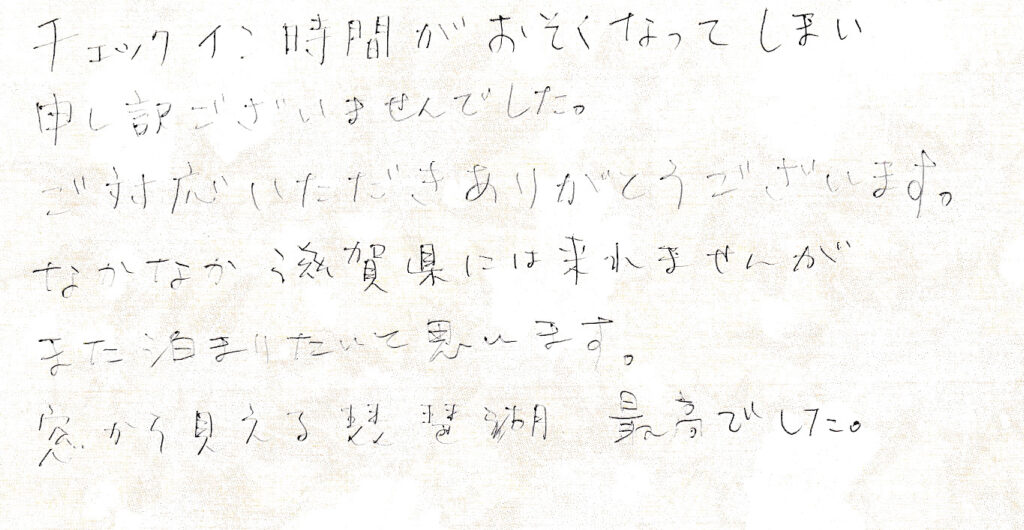 チェックイン時間がおそくなってしまい
申し訳ございませんでした。
ご対応いただきありがとうございます。
なかなか滋賀県には来れませんが
また泊まりたいと思います。
窓から見える琵琶湖 最高でした。